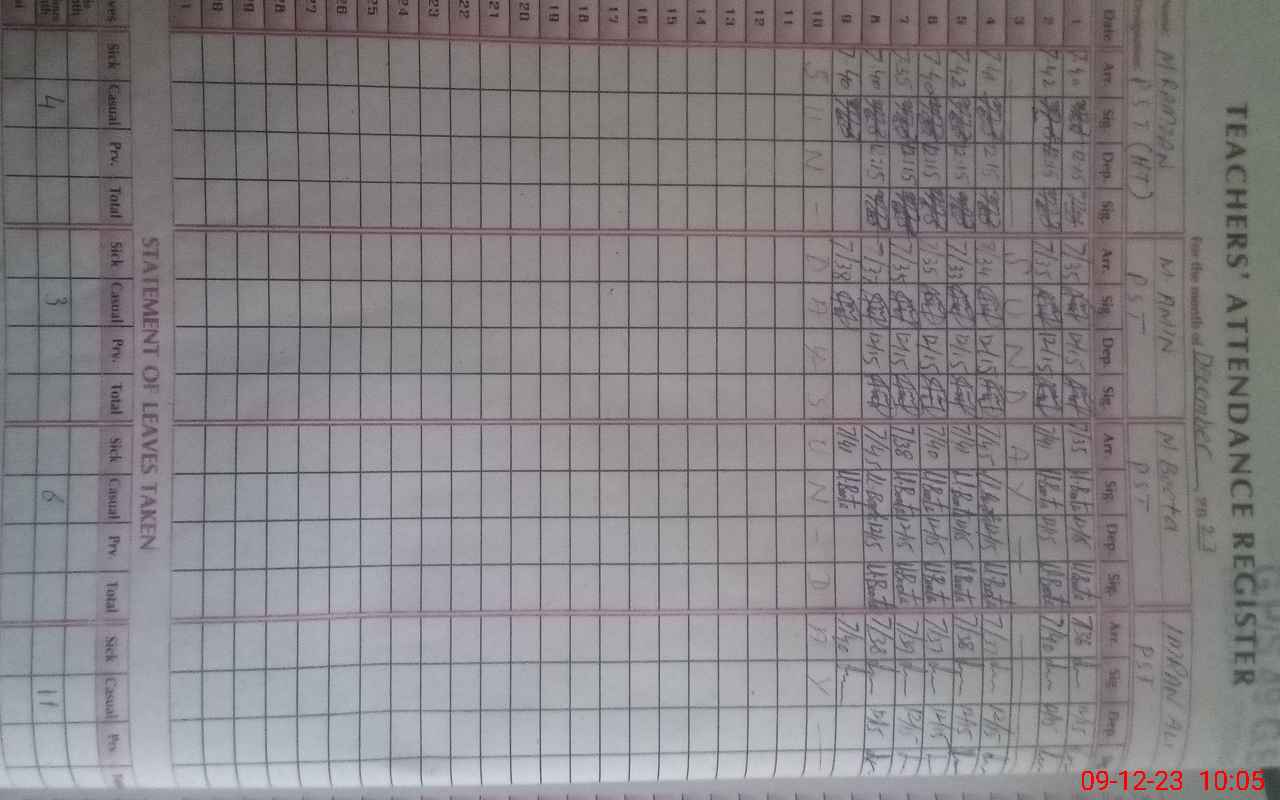 TEACHERS' ATTENDANCE REGISTER
For the month of December 2023
Name M RAMZAN M AMIN M Boota IMRAN ALI
Designation PST (HT) PST PST PST
Date Arr. Sig. Dep. Sig. Arr. Sig. Dep. Sig. Arr. Sig. Dep. Sig. Arr. Sig. Dep.
1 7.40 12.15 7/35 12/15 7/35 M.Boota 12/15 M.Boota 7/36 12/15
2 7.42 12.15 7/35 12/15 7/41 M.Boota 12/15 M.Boota 7/40 12/15
3 — S U N D A Y —
4 7.41 12.15 7/34 12/15 7/45 M.Boota 12/15 M.Boota 7/37 12/15
5 7.42 12.15 7/33 12/15 7/41 M.Boota 12/15 M.Boota 7/38 12/15
6 7.40 12.15 7/35 12/15 7/40 M.Boota 12/15 M.Boota 7/37 12/15
7 7.35 12.15 7/35 12/15 7/38 M.Boota 12/15 M.Boota 7/39 12/15
8 7.40 12.15 7/37 12/15 7/45 M.Boota 12/15 M.Boota 7/38 12/15
9 7.40 7/38 7/41 M.Boota 7/40
10 S U N - D A Y S U N - D A Y —
11
12
13
14
15
16
17
18
19
20
21
22
23
24
25
26
27
28
29
30
31
STATEMENT OF LEAVES TAKEN
Sick Casual Prv. Total Sick Casual Prv. Total Sick Casual Prv. Total Sick Casual Prv.
4 3 6 11
09-12-23 10:05